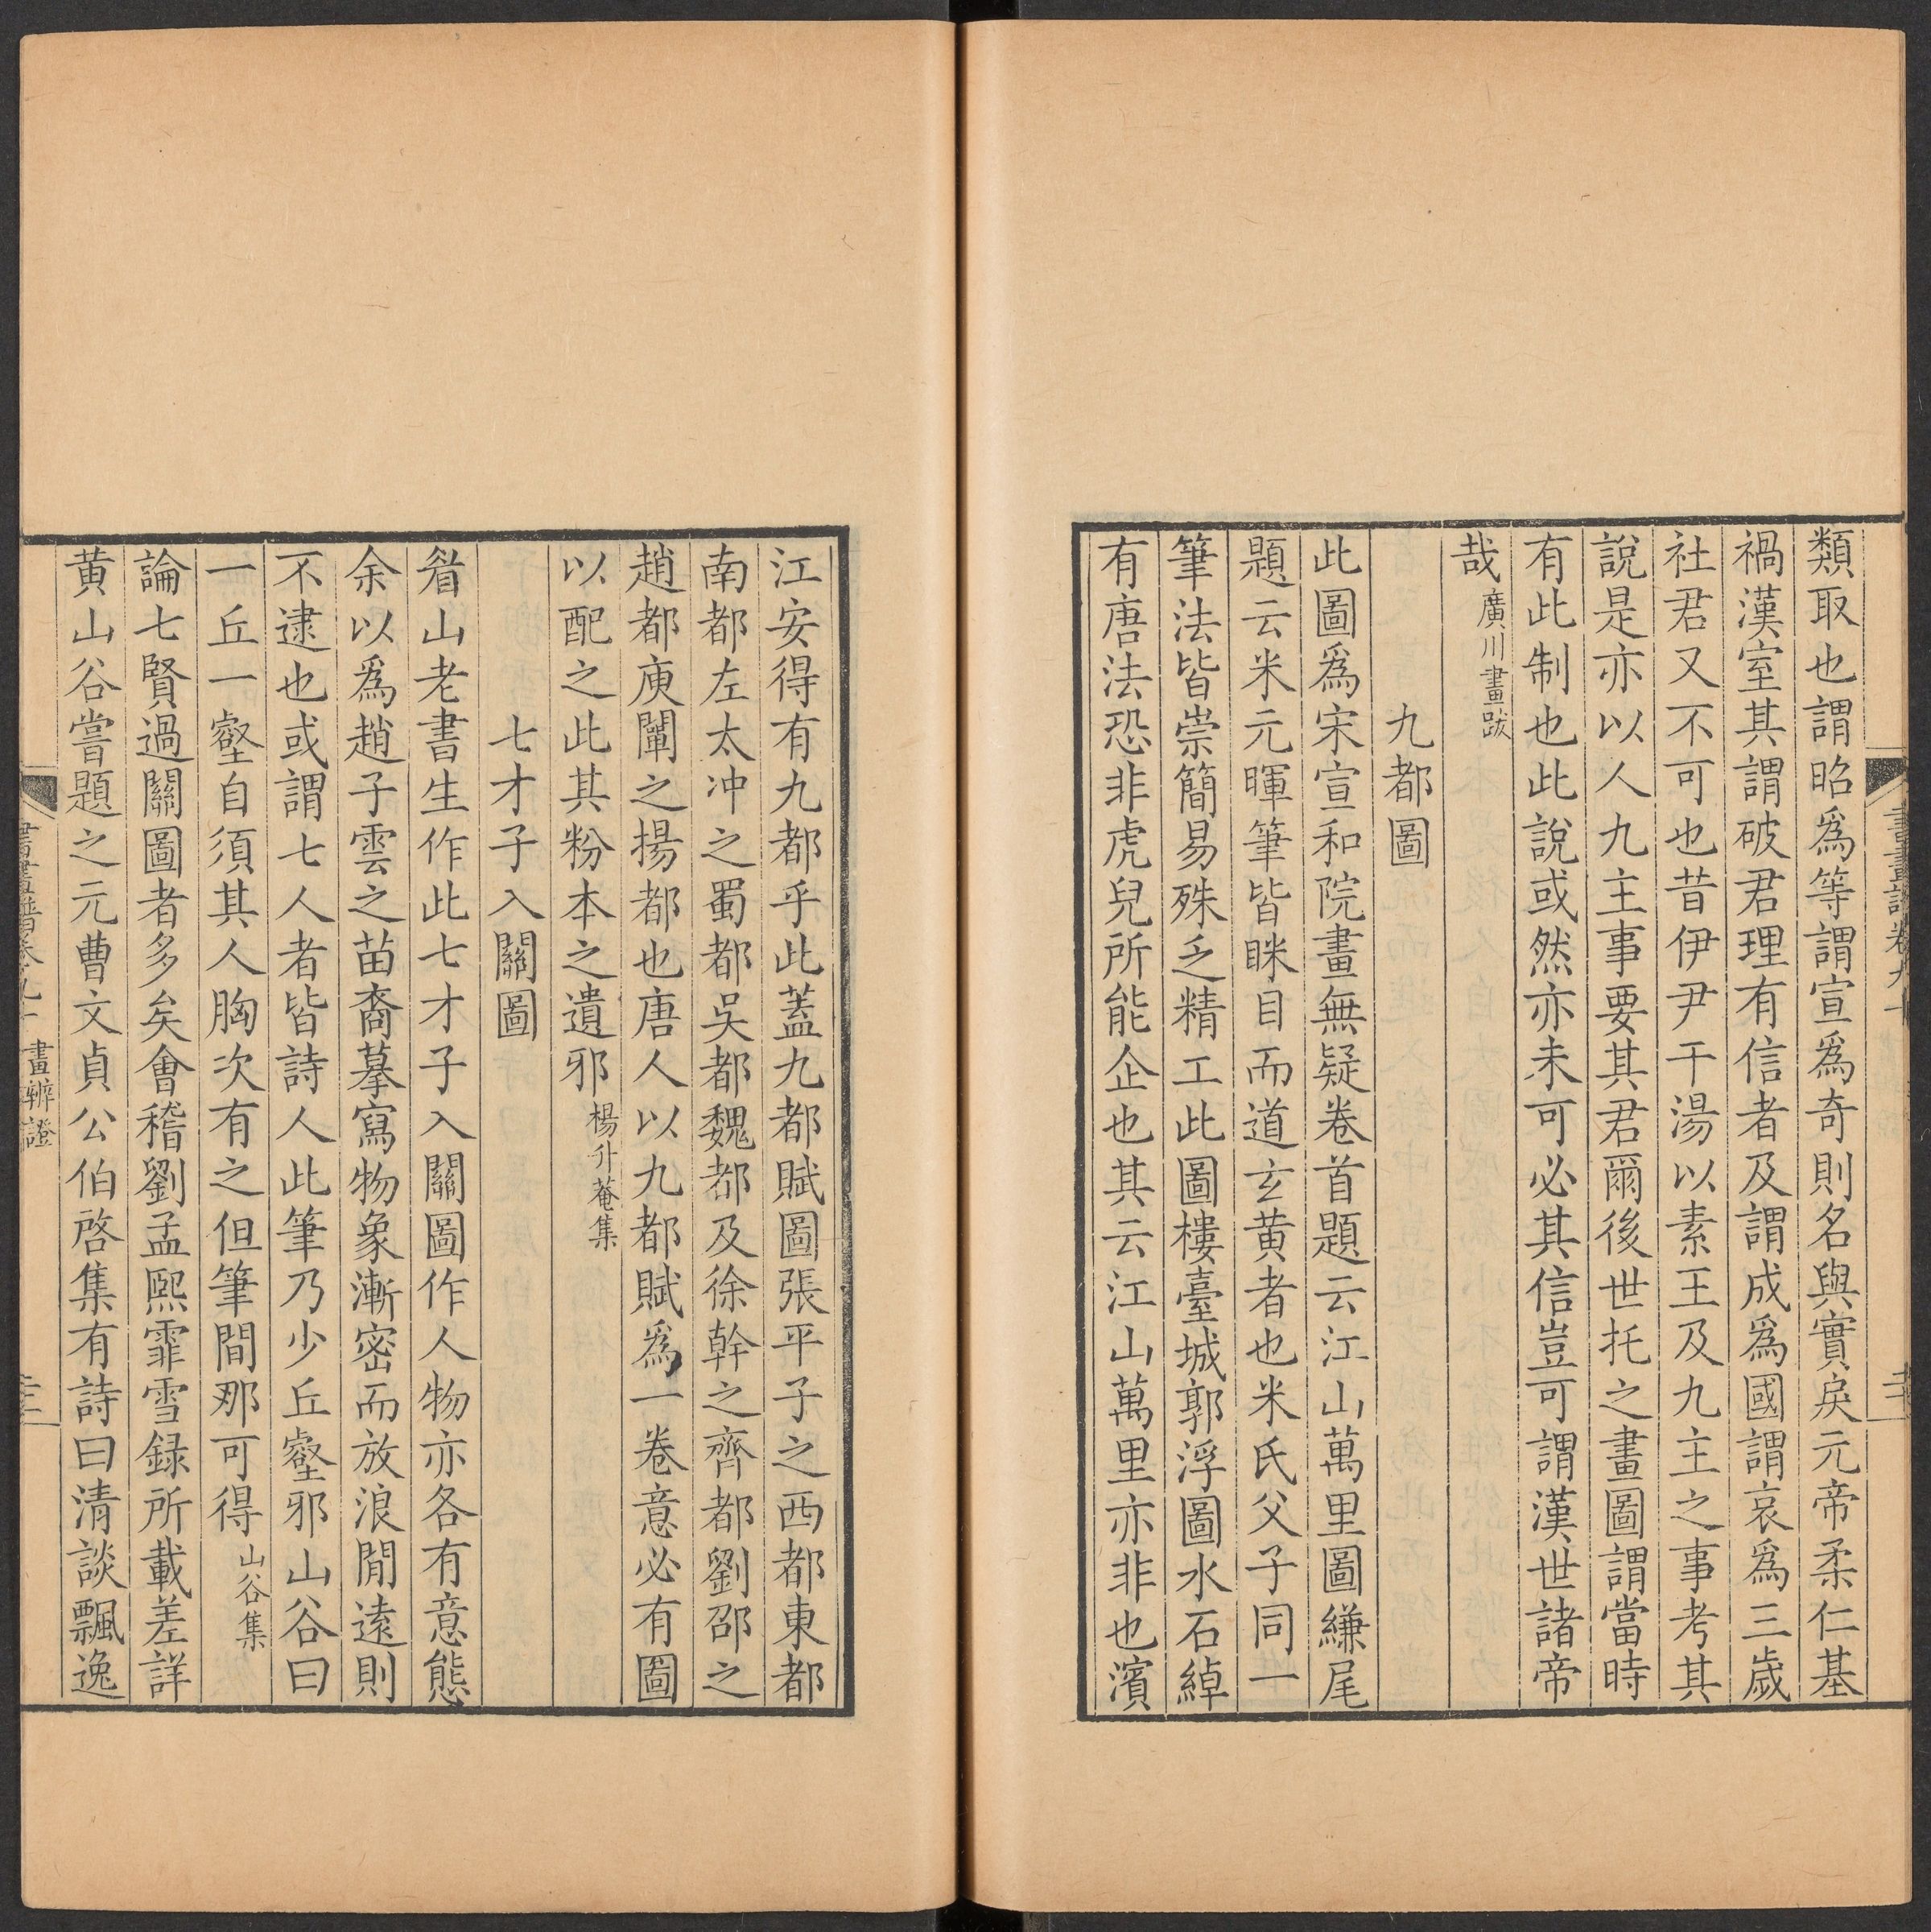 類取也謂昭爲等謂宣爲奇則名與實戾元帝柔仁基
禍漢室其謂破君理有信者及謂成爲國謂哀爲三歲
社君又不可也昔伊尹干湯以素王及九主之事考其
說是亦以人九主事要其君爾後世托之畫圖謂當時
有此制也此說或然亦未可必其信豈可謂漢世諸帝
哉廣川畫跋
九都圖
此圖爲宋宣和院畫無疑卷首題云江山萬里圖縑尾
題云米元暉筆皆眯目而道玄黃者也米氏父子同一
筆法皆崇簡易殊乏精工此圖樓臺城郭浮圖水石綽
有唐法恐非虎兒所能企也其云江山萬里亦非也濱
江安得有九都乎此蓋九都賦圖張平子之西都東都
南都左太冲之蜀都吳都魏都及徐幹之齊都劉邵之
趙都庾闡之揚都也唐人以九都賦爲一卷意必有圖
以配之此其粉本之遺邪楊升菴集
七才子入關圖
眉山老書生作此七才子入關圖作人物亦各有意態
余以爲趙子雲之苗裔摹寫物象漸密而放浪閒遠則
不逮也或謂七人者皆詩人此筆乃少丘壑邪山谷曰
一丘一壑自須其人胸次有之但筆間那可得山谷集
論七賢過關圖者多矣會稽劉孟熙霏雪録所載差詳
黄山谷嘗題之元曹文貞公伯啓集有詩曰清談飄逸
畫辨證